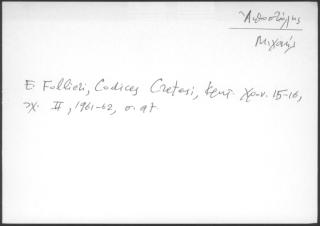 Μιχαήλ
E. Follieri, Codices Cretesi, Κρητ. Χρον. 15-16,
τχ. II, 1961-62, σ. 97.